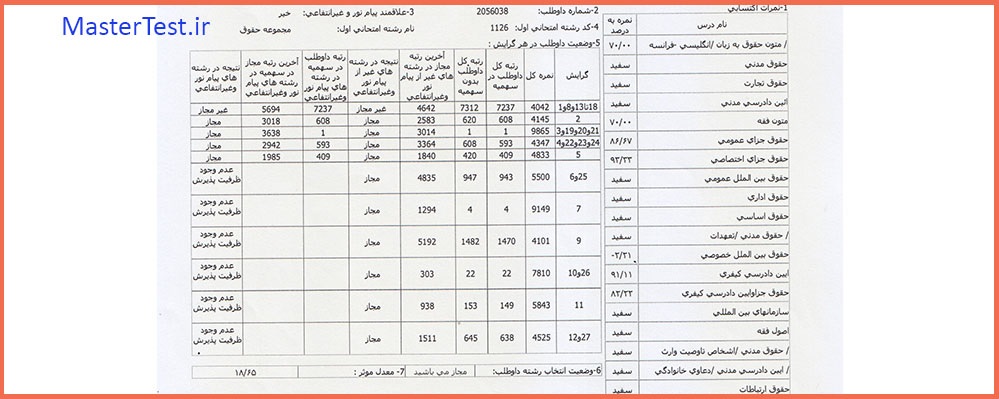 MasterTest.ir
1-نمرات اکتسابي
2-شماره داوطلب: 2056038
3-علاقمند پیام نور و غیرانتفاعي: خیر
4-کد رشته امتحاني اول: 1126 نام رشته امتحاني اول: مجموعه حقوق
5-وضعیت داوطلب در هر گرایش :
نام درس نمره به درصد
/ متون حقوق به زبان /انگلیسي -فرانسه ۷۰/۰۰
حقوق مدني سفید
حقوق تجارت سفید
آئین دادرسي مدني سفید
متون فقه ۷۰/۰۰
حقوق جزاي عمومي ۸۶/۶۷
حقوق جزاي اختصاصي ۹۳/۳۳
حقوق بین الملل عمومي سفید
حقوق اداري سفید
حقوق اساسي سفید
/ حقوق مدني /تعهدات سفید
حقوق بین الملل خصوصي ۰۲/۲۱-
ایین دادرسي کیفري ۹۱/۱۱
حقوق جزاوایین دادرسي کیفري
سازمانهاي بین المللي سفید
اصول فقه سفید
/ حقوق مدني /اشخاص تاوصیت وارث سفید
/ ایین دادرسي مدني /دعاوي خانوادگي سفید
حقوق ارتباطات سفید
گرایش نمره کل رتبه کل داوطلب در سهمیه رتبه کل داوطلب بدون سهمیه آخرین رتبه مجاز در رشته هاي غیر از پیام نور وغیرانتفاعي نتیجه در رشته هاي غیر از پیام نور وغیرانتفاعي رتبه داوطلب در سهمیه در رشته هاي پیام نور وغیرانتفاعي آخرین رتبه مجاز در سهمیه در رشته هاي پیام نور وغیرانتفاعي نتیجه در رشته هاي پیام نور وغیرانتفاعي
1و8و13تا18 4042 7237 7312 4642 غیر مجاز 7237 5694 غیر مجاز
2 4145 608 620 2583 مجاز 608 3018 مجاز
3و19و20و21 9865 1 1 3014 مجاز 1 3638 مجاز
4و22و23و24 4347 593 608 3364 مجاز 593 2942 مجاز
5 4833 409 420 1840 مجاز 409 1985 مجاز
6و25 5500 943 947 4835 مجاز عدم وجود ظرفیت پذیرش
7 9149 4 4 1294 مجاز عدم وجود ظرفیت پذیرش
9 4101 1470 1482 5192 مجاز عدم وجود ظرفیت پذیرش
10و26 7810 22 22 303 مجاز عدم وجود ظرفیت پذیرش
11 5843 149 153 938 مجاز عدم وجود ظرفیت پذیرش
12و27 4525 638 645 1511 مجاز عدم وجود ظرفیت پذیرش
6-وضعیت انتخاب رشته داوطلب: مجاز مي باشید 7- معدل موثر : ۱۸/۶۵